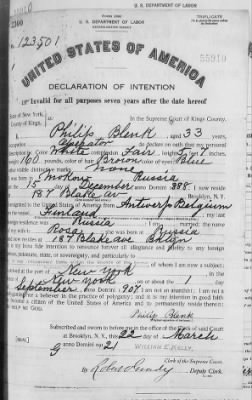 U. S. DEPARTMENT OF LABOR
TRIPLICATE
U. S. DEPARTMENT OF LABOR
No. 123501
55910
UNITED STATES OF AMERICA
DECLARATION OF INTENTION
Invalid for all purposes seven years after the date hereof
State of New York,
County of Kings,
In the Supreme Court of Kings County.
I, Philip Blenk, aged 33 years,
occupation Operator, do declare on oath that my personal
description is: Color White, complexion Fair, height 5 feet 7 inches,
weight 160 pounds, color of hair Brown, color of eyes Blue
other visible distinctive marks None
I was born in Russia
on the 15 day of December, anno Domini 1 888; I now reside
at 187 Blake Av, Brooklyn, N. Y.
I emigrated to the United States of America from Antwerp Belgium
on the vessel Finland; my last
foreign residence was Russia; I am married; the name
of my wife is Rosa; she was born at Russia
and now resides at 187 Blake ave Bklyn
It is my bona fide intention to renounce forever all allegiance and fidelity to any foreign
prince, potentate, state, or sovereignty, and particularly to
of whom I am now a subject;
I arrived at the port of New York, in the
State of New York, on or about the 1 day
of September, anno Domini 1 907; I am not an anarchist; I am not a
polygamist nor a believer in the practice of polygamy; and it is my intention in good faith
to become a citizen of the United States of America and to permanently reside therein:
Philip Blenk
Subscribed and sworn to before me in the office of the Clerk of said Court
at Brooklyn, N. Y., this 22 day of March
anno Domini 19 21
[SEAL]
WILLIAM E. KELLY
Clerk of the Supreme Court.
By
Deputy Clerk.